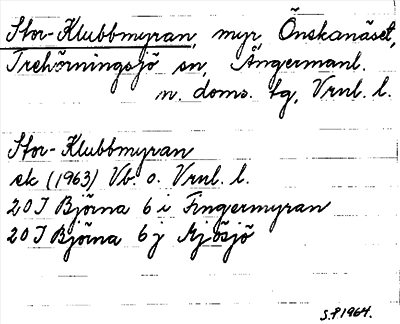 Stor-Klubbmyran, myr Önskanäset,
Trehörningsjö sn, Ångermanl.
n. doms. tg, Vrnl. l.
Stor-Klubbmyran
ek (1963) Vb. o. Vrnl. l.
20 I Björna 6 i Fingermyran
20 I Björna 6 j Mjösjö
S.P 1964.